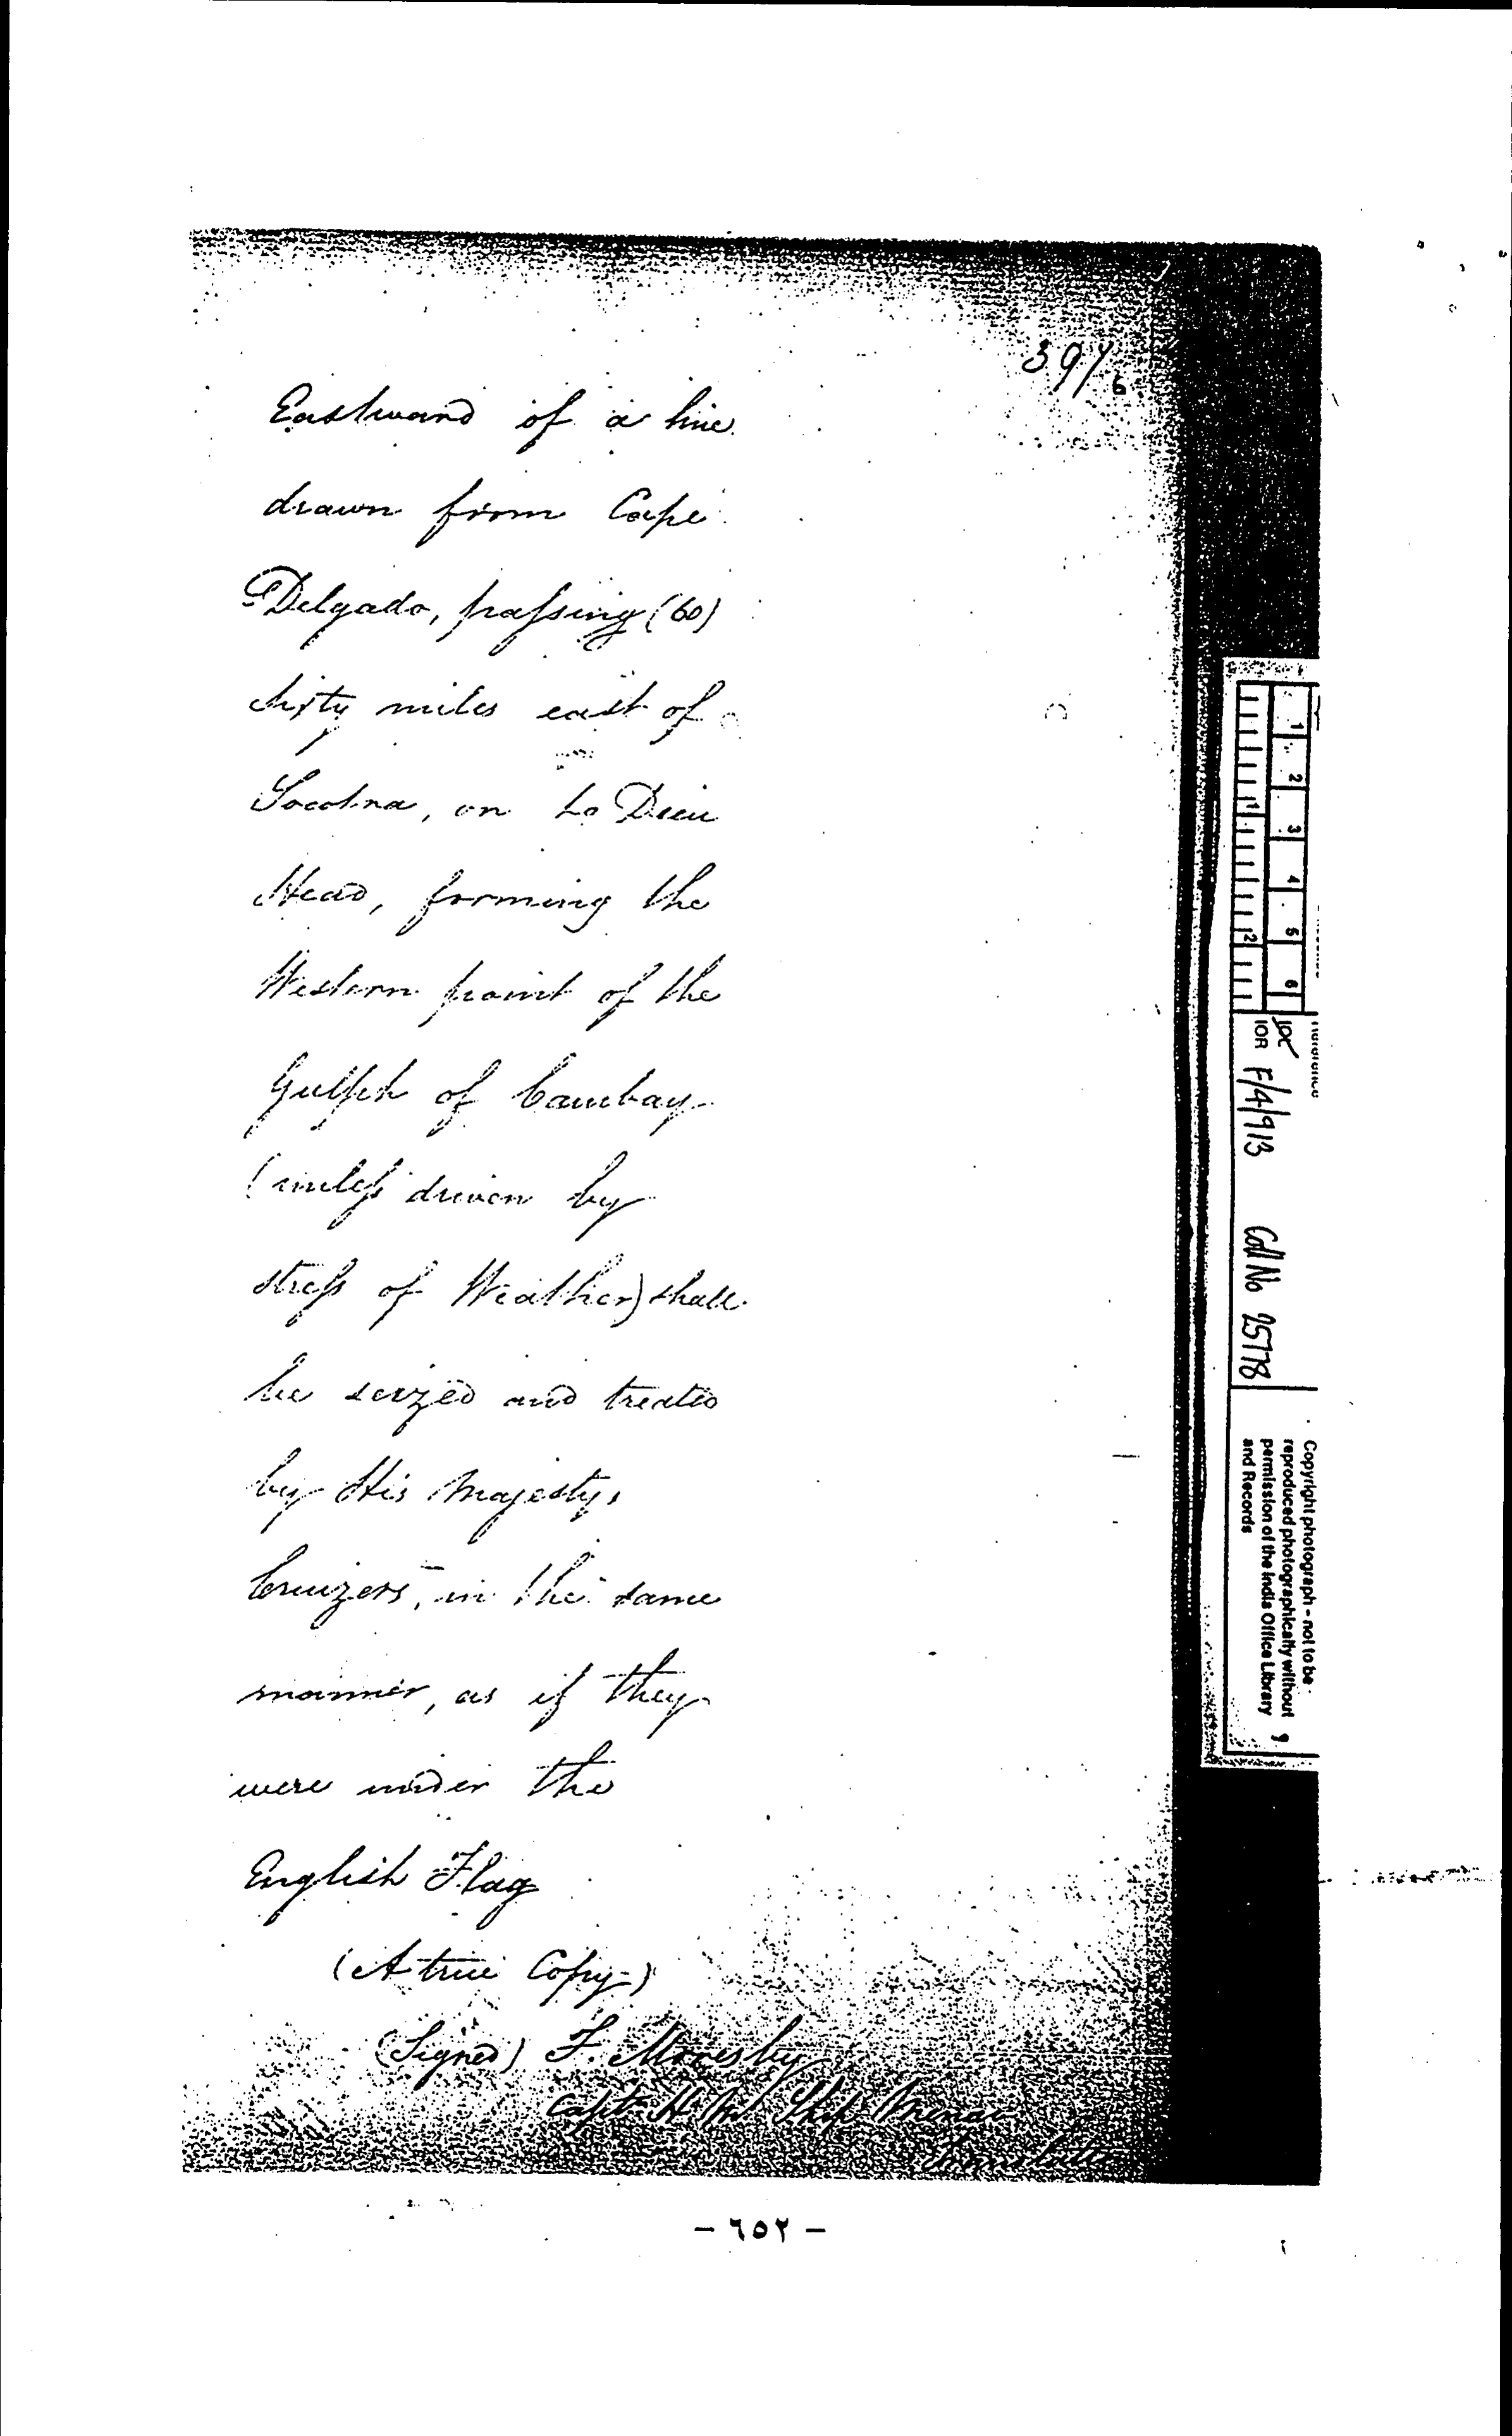 391/6
Eastward of a line
drawn from Cape
Delgado, passing (60)
sixty miles east of
Socotra, on to Dieu
Head, forming the
Western point of the
Gulph of Cambay
(unless driven by
stress of Weather) shall
be seized and treated
by His Majestys
Cruizers, in the same
manner, as if they
were under the
English Flag
(A true Copy)
(Signed) F. Moresby
Captn H. M. Ship Menai
- ٦٥٢ -
1 2 3 4 5 6
1 2
IOR F/4/913 Coll No 25778
Copyright photograph - not to be
reproduced photographically without
permission of the India Office Library
and Records